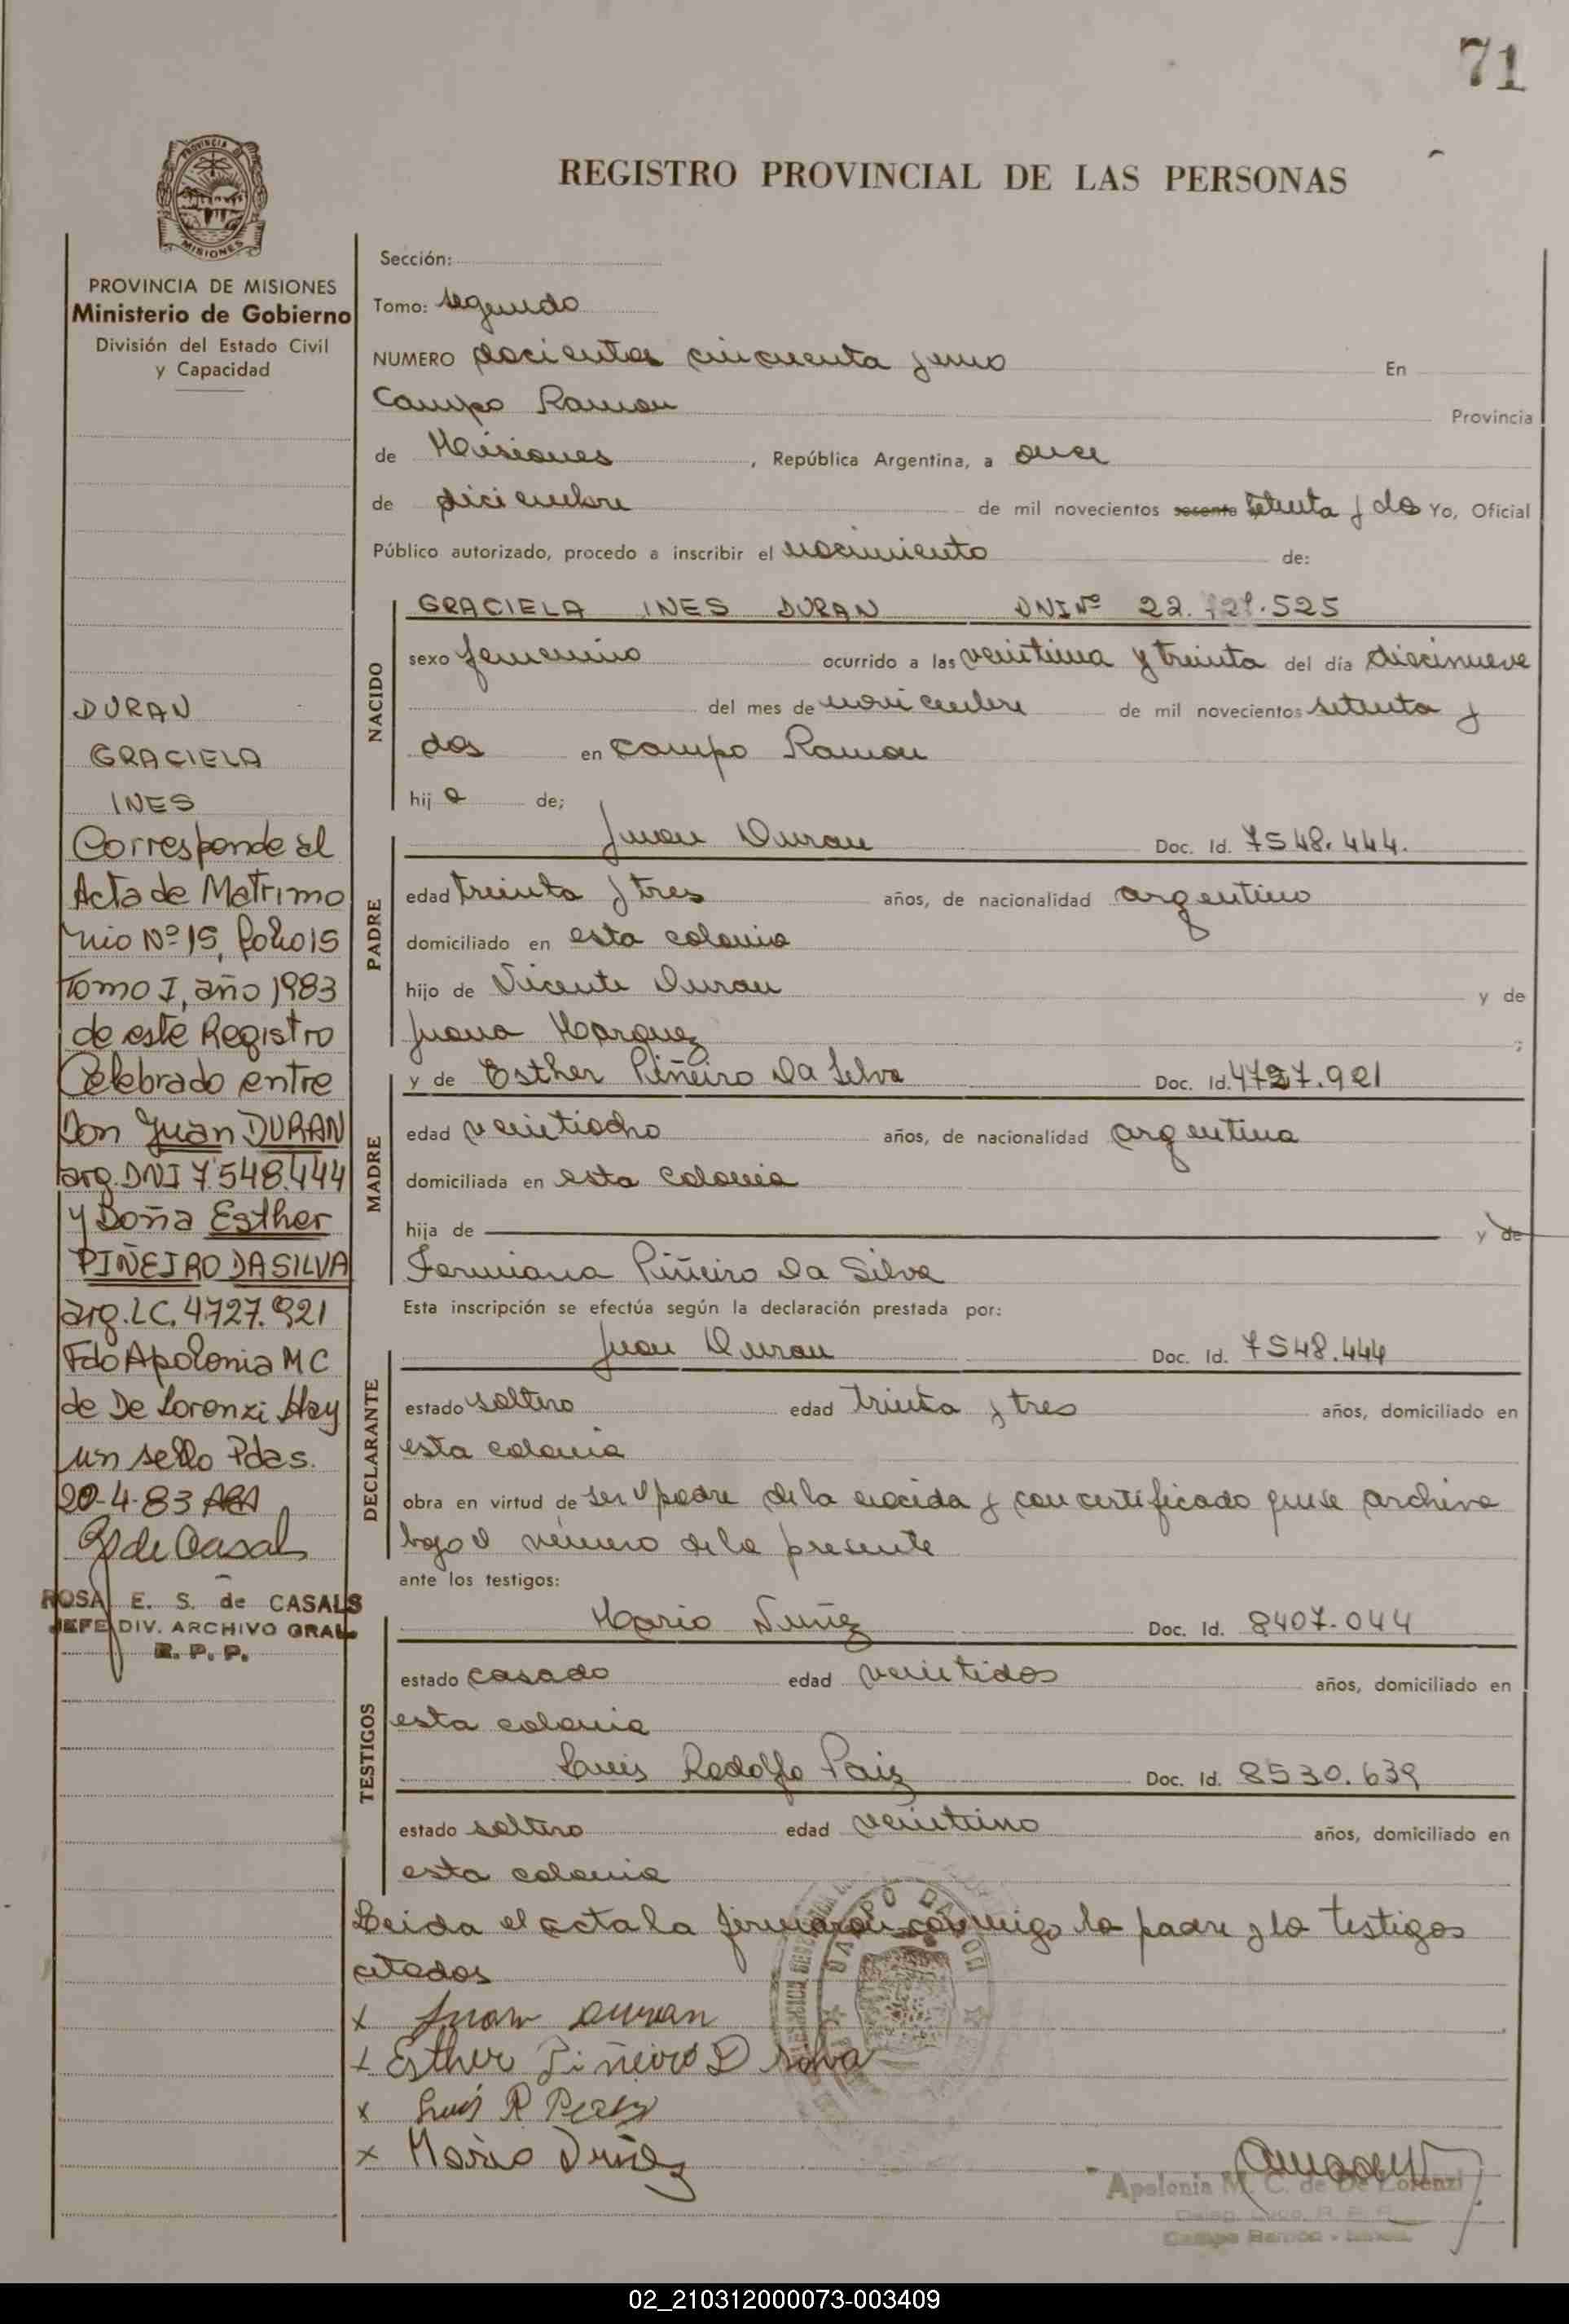 71
REGISTRO PROVINCIAL DE LAS PERSONAS
PROVINCIA DE MISIONES
Ministerio de Gobierno
División del Estado Civil
y Capacidad
Sección:
Tomo: segundo
NUMERO docientos cincuenta y uno En
Campo Ramon Provincia
de Misiones, República Argentina, a once
de diciembre de mil novecientos sesenta setenta y dos Yo, Oficial
Público autorizado, procedo a inscribir el nacimiento de:
NACIDO
GRACIELA INES DURAN DNI Nº 22. .525
sexo femenino ocurrido a las veintiuna y treinta del día diecinueve
del mes de noviembre de mil novecientos setenta y
dos en campo Ramon
hij a de;
PADRE
Juan Duran Doc. Id. 7548.444.
edad treinta y tres años, de nacionalidad argentino
domiciliado en esta colonia
hijo de Vicente Duran y de
Juana Marquez ;
MADRE
y de Esther Piñeiro Da Selva Doc. Id. 4727.921
edad veintiocho años, de nacionalidad argentina
domiciliada en esta colonia
hija de y de
Fermiana Piñeiro Da Silva
Esta inscripción se efectúa según la declaración prestada por:
DECLARANTE
Juan Duran Doc. Id. 7548.444
estado soltero edad treinta y tres años, domiciliado en
esta colonia
obra en virtud de ser el padre de la nacida y con certificado que se archiva
bajo el número de la presente
ante los testigos:
TESTIGOS
Mario Nuñez Doc. Id. 8407.044
estado casado edad veintidos años, domiciliado en
esta colonia
Luis Rodolfo Paiz Doc. Id. 8530.639
estado soltero edad veintiuno años, domiciliado en
esta colonia
Leida el acta la firmaron conmigo lo padre y lo testigos
citados
x Juan Duran
x Esther Piñeiro D silva
x Luis R
x Mario Nuñez
Apolonia M. C. de De Lorenzi
DURAN
GRACIELA
INES
Corresponde al
Acta de Matrimo
nio Nº 15, folio 15
Tomo I, año 1983
de este Registro
Celebrado entre
Don Juan DURAN
arg. DNI 7.548.444
y Doña Esther
PIÑEIRO DA SILVA
arg. LC. 4727.921
Fdo Apolonia M C
de De Lorenzi Hay
un sello Pdas.
20-4-83
ROSA E. S. de CASALS
JEFE DIV. ARCHIVO GRAL.
R. P. P.
02_210312000073-003409